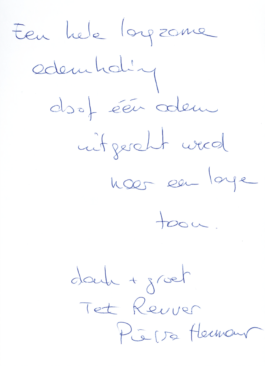 Een hele langzame
ademhaling
alsof één adem
uitgerekt werd
naar een lange
toon.
dank + groet
Pierre